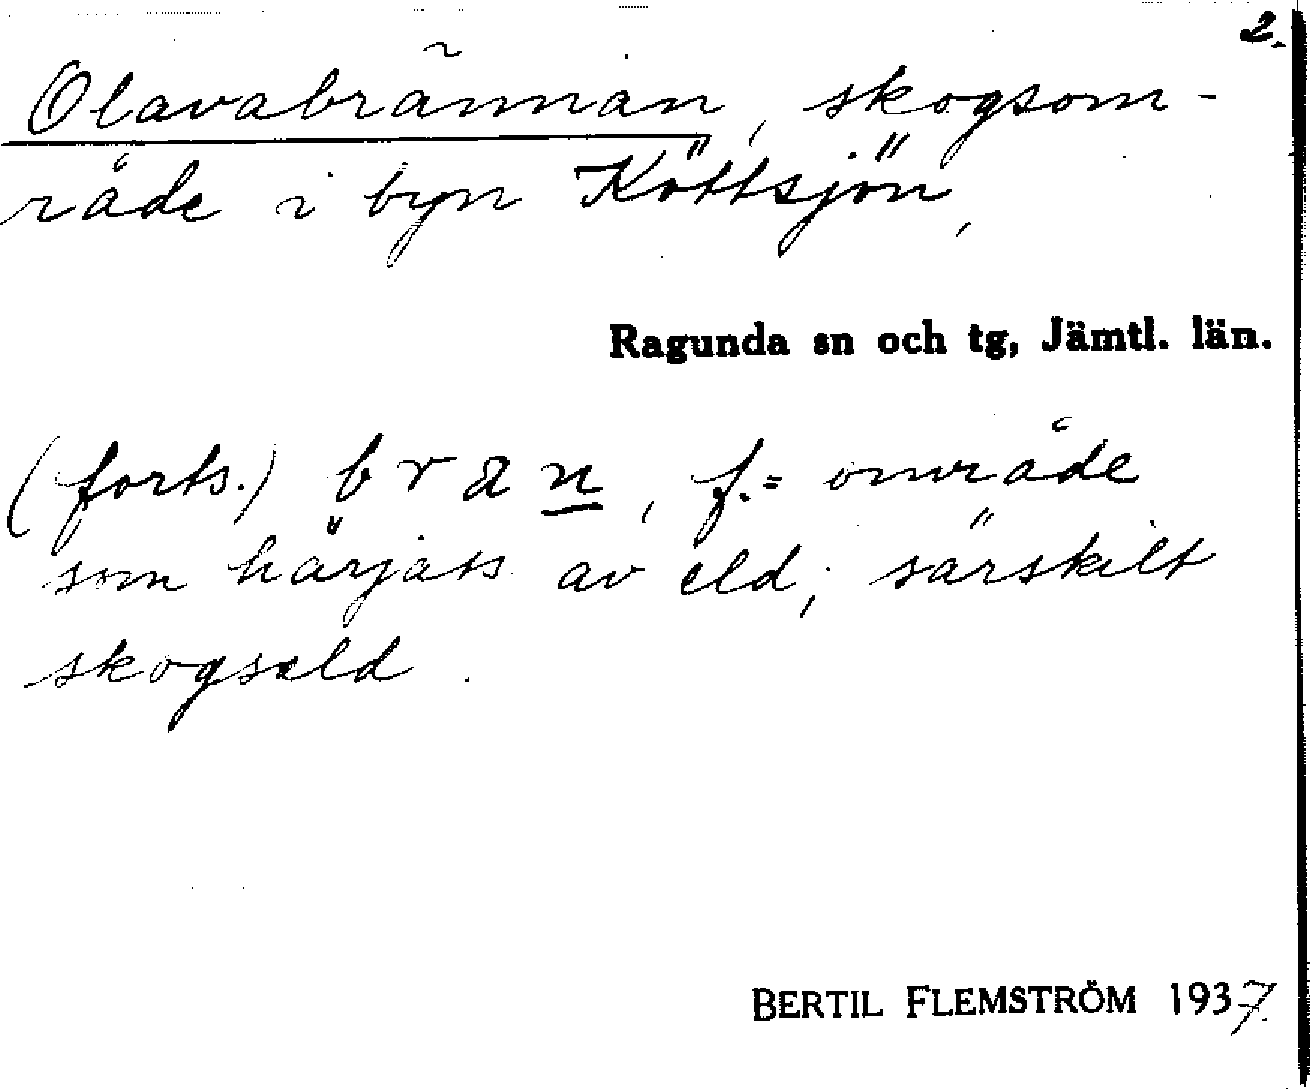 2.
Olavabrännan, skogsom-
råde i byn Köttsjön,
Ragunda sn och tg, Jämtl. län.
(forts.) bran, f. = område
som härjats av eld; särskilt
skogseld.
BERTIL FLEMSTRÖM 1937.